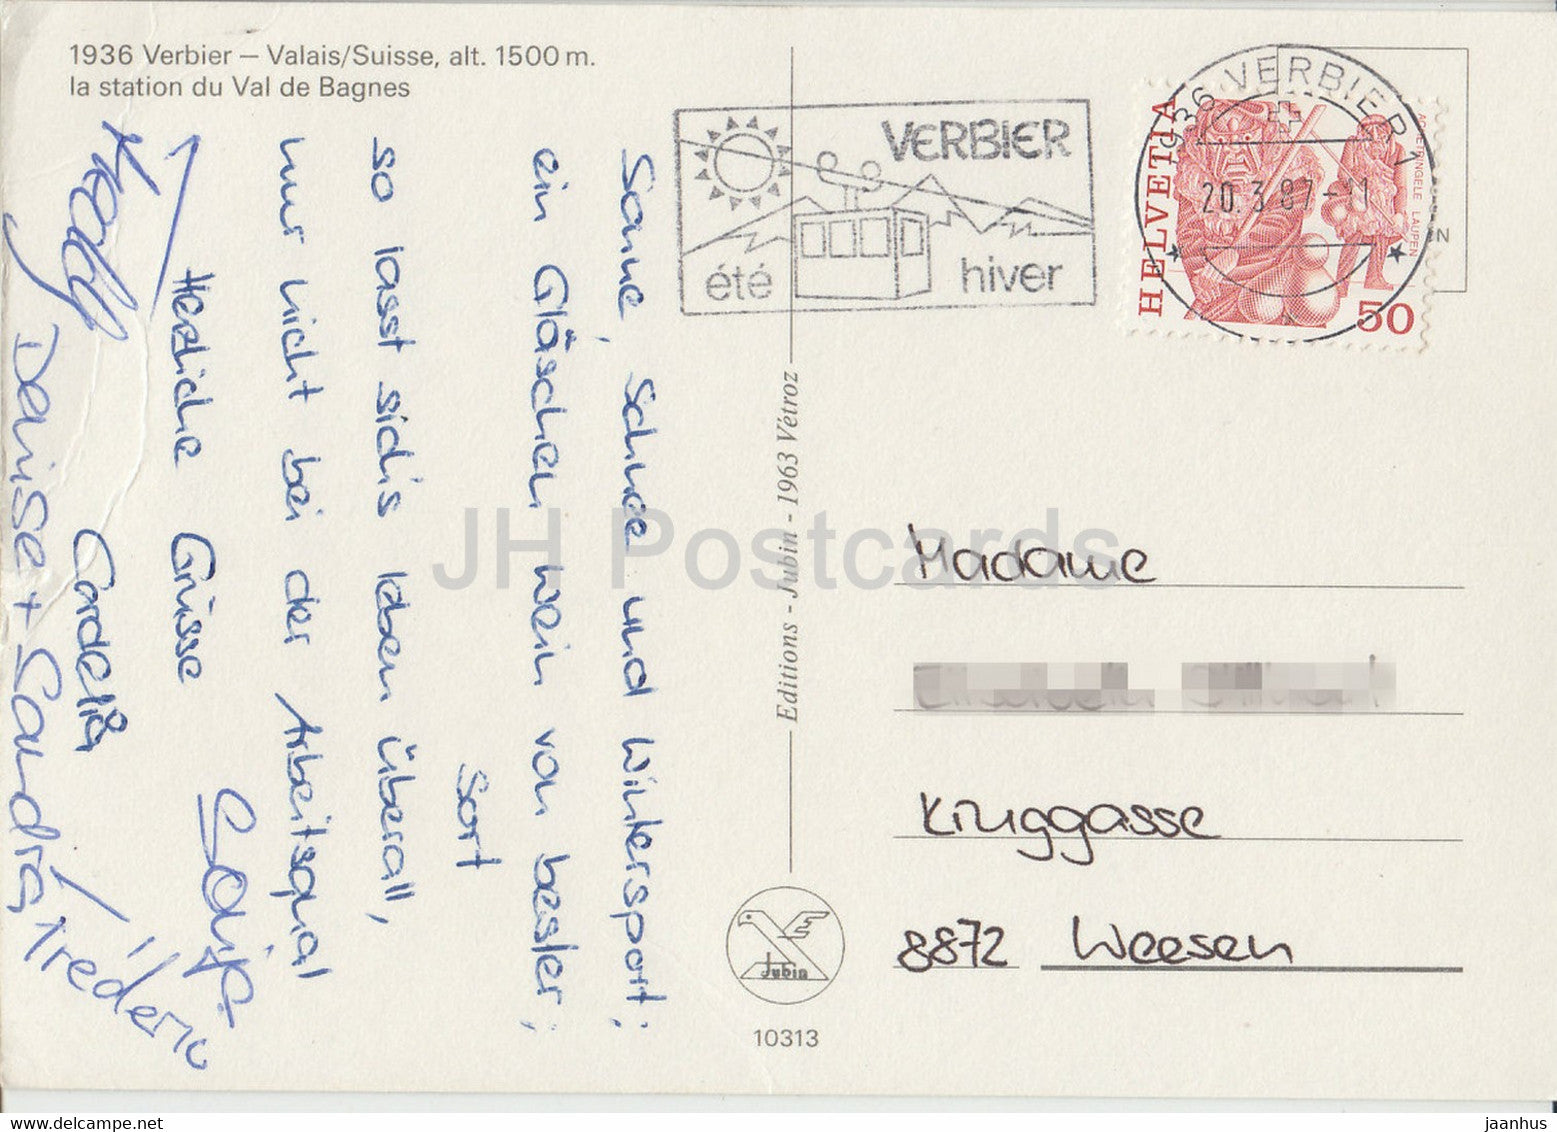 1936 Verbier – Valais/Suisse, alt. 1500 m.
la station du Val de Bagnes
Sonne, Schnee und Wintersport;
ein Gläschen Wein von bester;
Sort
so lasst sich's leben überall,
nur nicht bei der Arbeitsqual
Herzliche Grüsse
Cordelia
Denise + Sandra
Frédéric
VERBIER
été hiver
1936 VERBIER 1
20.3.87-11
HELVETIA
ACHETRINGELE LAUPEN
50
N
Editions - Jubin - 1963 Vétroz
Jubin
10313
Madame
Kruggasse
8872 Weesen
JH Postcards
jaanhus